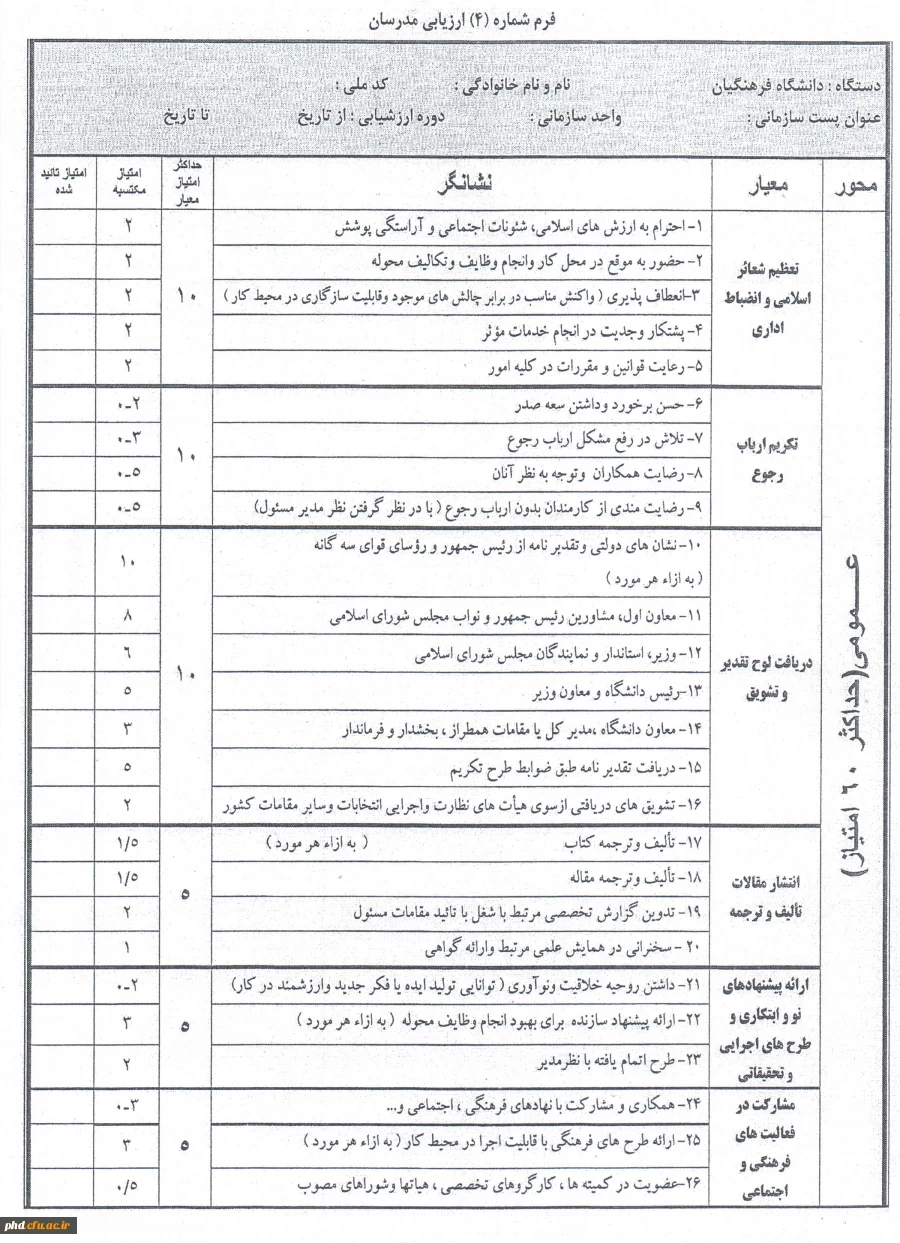 فرم شماره (۴) ارزیابی مدرسان
دستگاه : دانشگاه فرهنگیان نام و نام خانوادگی : کد ملی :
عنوان پست سازمانی : واحد سازمانی : دوره ارزشیابی : از تاریخ تا تاریخ
محور معیار نشانگر حداکثر امتیاز معیار امتیاز مکتسبه امتیاز تائید شده
عـــمومی(حداکثر ۶۰ امتیاز)
تعظیم شعائر اسلامی و انضباط اداری
۱۰
۱- احترام به ارزش های اسلامی، شئونات اجتماعی و آراستگی پوشش ۲
۲- حضور به موقع در محل کار وانجام وظایف وتکالیف محوله ۲
۳-انعطاف پذیری ( واکنش مناسب در برابر چالش های موجود وقابلیت سازگاری در محیط کار ) ۲
۴- پشتکار وجدیت در انجام خدمات مؤثر ۲
۵- رعایت قوانین و مقررات در کلیه امور ۲
تکریم ارباب رجوع
۱۰
۶- حسن برخورد وداشتن سعه صدر ۲-۰
۷- تلاش در رفع مشکل ارباب رجوع ۳-۰
۸- رضایت همکاران وتوجه به نظر آنان ۵-۰
۹- رضایت مندی از کارمندان بدون ارباب رجوع ( با در نظر گرفتن نظر مدیر مسئول) ۵-۰
دریافت لوح تقدیر و تشویق
۱۰
۱۰- نشان های دولتی وتقدیر نامه از رئیس جمهور و رؤسای قوای سه گانه
( به ازاء هر مورد ) ۱۰
۱۱- معاون اول، مشاورین رئیس جمهور و نواب مجلس شورای اسلامی ۸
۱۲- وزیر، استاندار و نمایندگان مجلس شورای اسلامی ۶
۱۳-رئیس دانشگاه و معاون وزیر ۵
۱۴- معاون دانشگاه ،مدیر کل یا مقامات همطراز ، بخشدار و فرماندار ۳
۱۵- دریافت تقدیر نامه طبق ضوابط طرح تکریم ۵
۱۶- تشویق های دریافتی ازسوی هیأت های نظارت واجرایی انتخابات وسایر مقامات کشور ۲
انتشار مقالات تألیف و ترجمه
۵
۱۷- تألیف وترجمه کتاب ( به ازاء هر مورد ) ۱/۵
۱۸- تألیف وترجمه مقاله ۱/۵
۱۹- تدوین گزارش تخصصی مرتبط با شغل با تائید مقامات مسئول ۲
۲۰ - سخنرانی در همایش علمی مرتبط وارائه گواهی ۱
ارائه پیشنهادهای نو و ابتکاری و طرح های اجرایی و تحقیقاتی
۵
۲۱- داشتن روحیه خلاقیت ونوآوری ( توانایی تولید ایده یا فکر جدید وارزشمند در کار) ۲-۰
۲۲- ارائه پیشنهاد سازنده برای بهبود انجام وظایف محوله ( به ازاء هر مورد ) ۳
۲۳- طرح اتمام یافته با نظرمدیر ۲
مشارکت در فعالیت های فرهنگی و اجتماعی
۵
۲۴- همکاری و مشارکت با نهادهای فرهنگی ، اجتماعی و... ۳-۰
۲۵- ارائه طرح های فرهنگی با قابلیت اجرا در محیط کار ( به ازاء هر مورد ) ۳
۲۶-عضویت در کمیته ها ، کارگروهای تخصصی ، هیاتها وشوراهای مصوب ۰/۵
phd.cfu.ac.ir